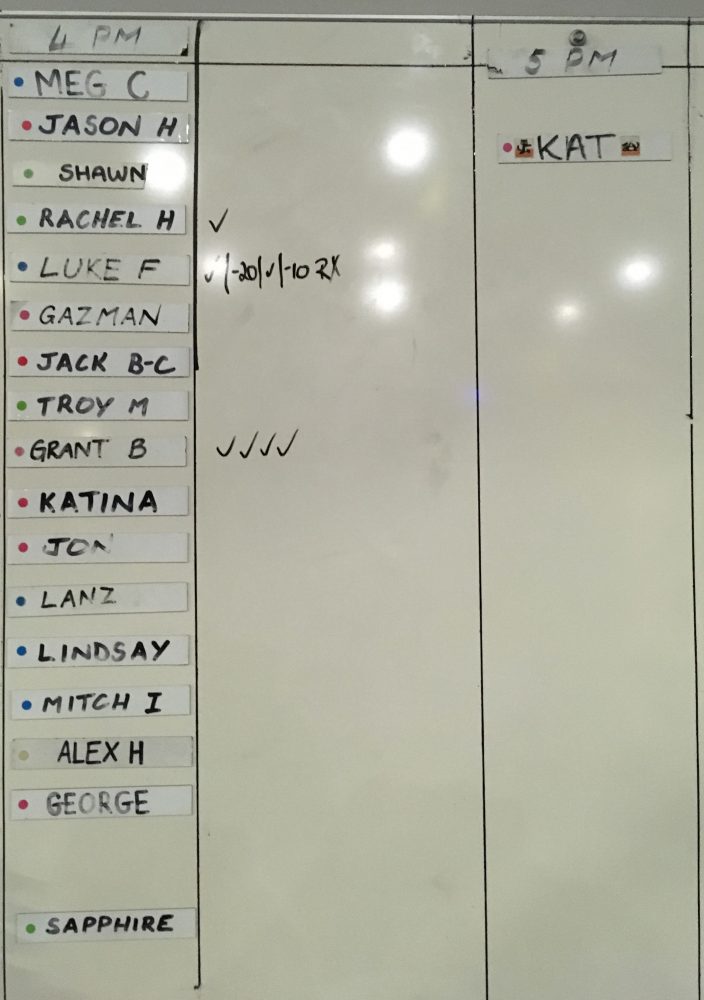 4 PM
MEG C
JASON H
SHAWN
RACHEL H ✓
LUKE F ✓/-20/✓/-10 RX
GAZMAN
JACK B-C
TROY M
GRANT B ✓✓✓✓
KATINA
JON
LANZ
LINDSAY
MITCH I
ALEX H
GEORGE
SAPPHIRE
5 PM
KAT